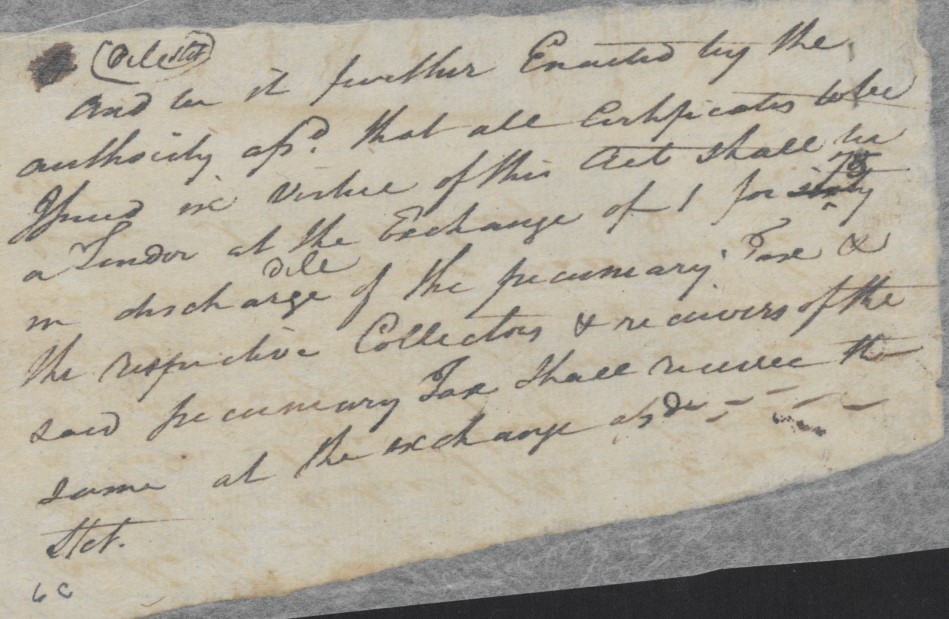 (dele stet)
And be it further Enacted by the
authority afsd. that all Certificates to be
Issued in virtue of this Act shall be
a Tender at the Exchange of 1 for
in discharge of the pecuniary Tax &
dele
the respective Collectors & receivers of the
said pecuniary Tax shall receive the
same at the exchange afsd
Stet.
6 C